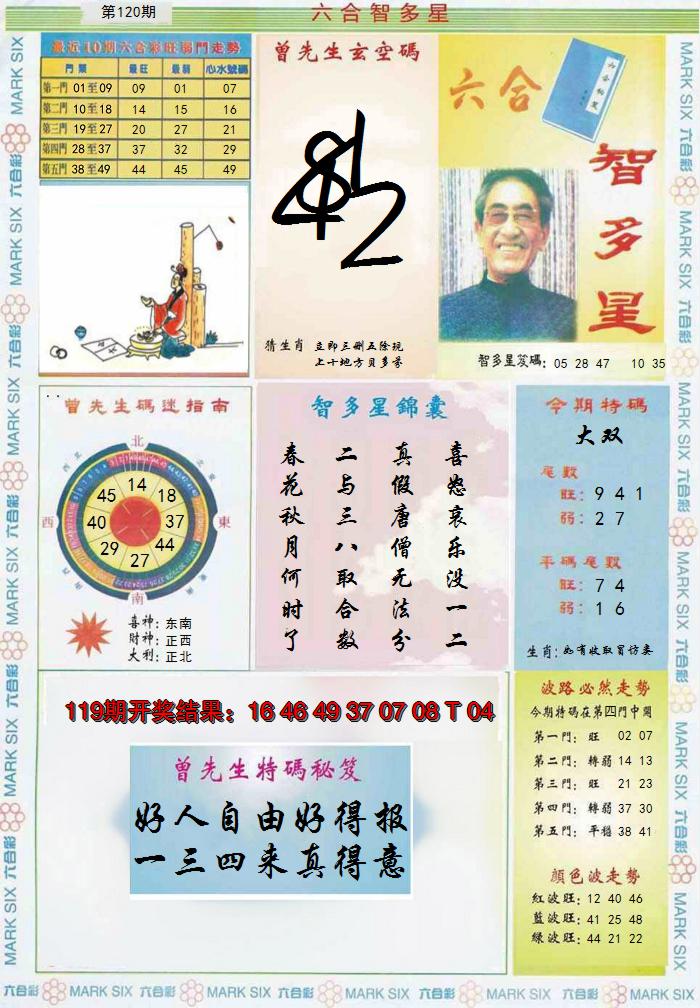 第120期
六合智多星
最近10期六合彩旺弱門走勢
門類 最旺 最弱 心水號碼
第一門 01至09 09 01 07
第二門 10至18 14 15 16
第三門 19至27 20 27 21
第四門 28至37 37 32 29
第五門 38至49 44 45 49
曾先生玄空碼
猜生肖 立即三删五除现
上十地方贝多芬
六合
智多星
智多星笈碼: 05 28 47 10 35
曾先生碼迷指南
北
西 東
南
45 14 18
40 37
29 27 44
喜神: 东南
財神: 正西
大利: 正北
智多星錦囊
喜怒哀乐没一二
真假唐僧无法分
二与三八取合数
春花秋月何时了
今期特碼
大双
尾數
旺: 9 4 1
弱: 2 7
平碼尾數
旺: 7 4
弱: 1 6
生肖: 如有收取冒访妻
119期开奖结果：16 46 49 37 07 08 T 04
曾先生特碼秘笈
好人自由好得报
一三四来真得意
波路必然走勢
今期特碼在第四門中開
第一門: 旺 02 07
第二門: 轉弱 14 13
第三門: 旺 21 23
第四門: 轉弱 37 30
第五門: 平穩 38 41
顏色波走勢
紅波旺: 12 40 46
藍波旺: 41 25 48
綠波旺: 44 21 22
MARK SIX 六合彩